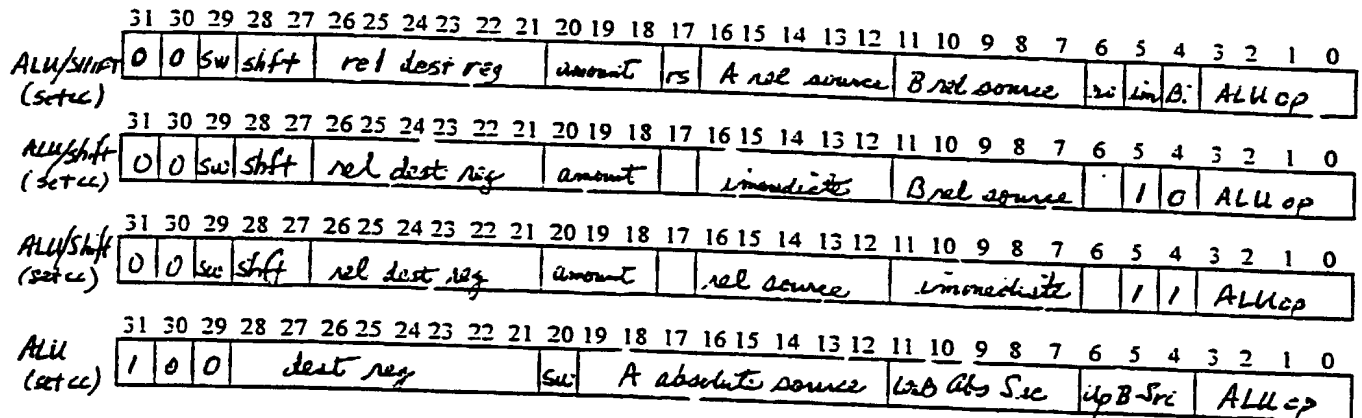 31 30 29 28 27 26 25 24 23 22 21 20 19 18 17 16 15 14 13 12 11 10 9 8 7 6 5 4 3 2 1 0
ALU/SHIFT 0 0 sw shft rel dest reg amount rs A rel source B rel source im B. ALU op
(setcc)
31 30 29 28 27 26 25 24 23 22 21 20 19 18 17 16 15 14 13 12 11 10 9 8 7 6 5 4 3 2 1 0
ALU/shft 0 0 sw shft rel dest reg amount immediate B rel source 1 0 ALU op
(setcc)
31 30 29 28 27 26 25 24 23 22 21 20 19 18 17 16 15 14 13 12 11 10 9 8 7 6 5 4 3 2 1 0
ALU/Shift 0 0 sw shft rel dest reg amount rel source immediate 1 1 ALU op
(setcc)
31 30 29 28 27 26 25 24 23 22 21 20 19 18 17 16 15 14 13 12 11 10 9 8 7 6 5 4 3 2 1 0
ALU 1 0 0 dest reg sw A absolute source Abs ALU op
(setcc)